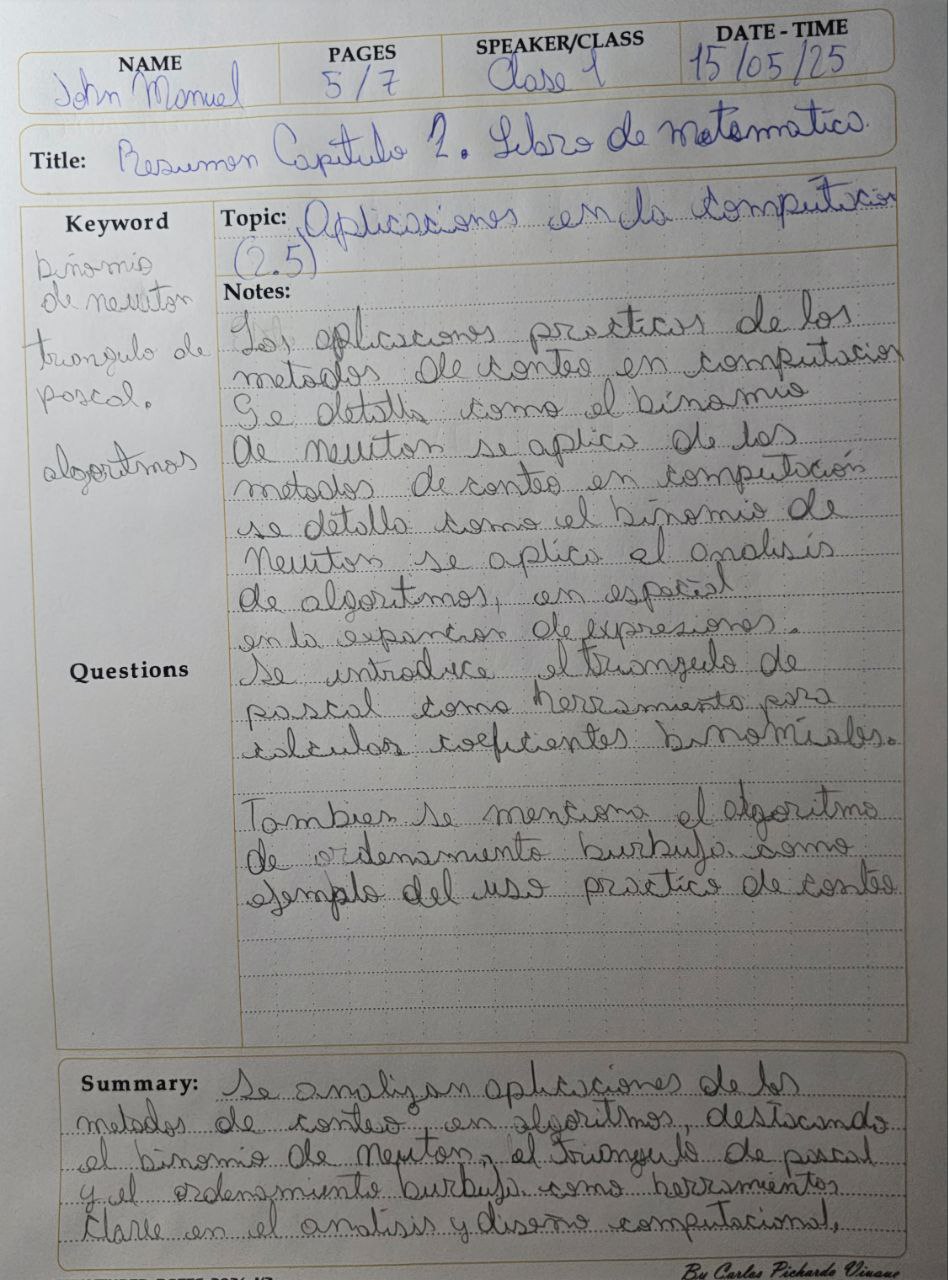 NAME
PAGES
SPEAKER/CLASS
DATE - TIME
John Manuel
5/7
Clase 1
15/05/25
Title: Resumen Capitulo 2. Libro de matematica.
Keyword
binomio
de newton
triangulo de
pascal.
algoritmos
Questions
Topic: Aplicaciones en la computacion
(2.5)
Notes:
Las aplicaciones practicas de los
metodos de conteo en computacion
Se detalla como el binomio
de newton se aplica de los
metodos de conteo en computación
se detalla como el binomio de
Newton se aplica el analisis
de algoritmos, en especial
en la expancion de expresiones.
Se introduce el triangulo de
pascal como herramienta para
calculas coeficientes binomiales.
Tambien se menciona el algoritmo
de ordenamiento burbuja como
ejemplo del uso practico de conteo
Summary: Se analizan aplicaciones de los
metodos de conteo, en algoritmos, destacando
el binomio de Newton, el triangulo de pascal
y el ordenamiento burbuja como herramientas
Clave en el analisis y diseño computacional.
By Carlos Pichardo Viuque